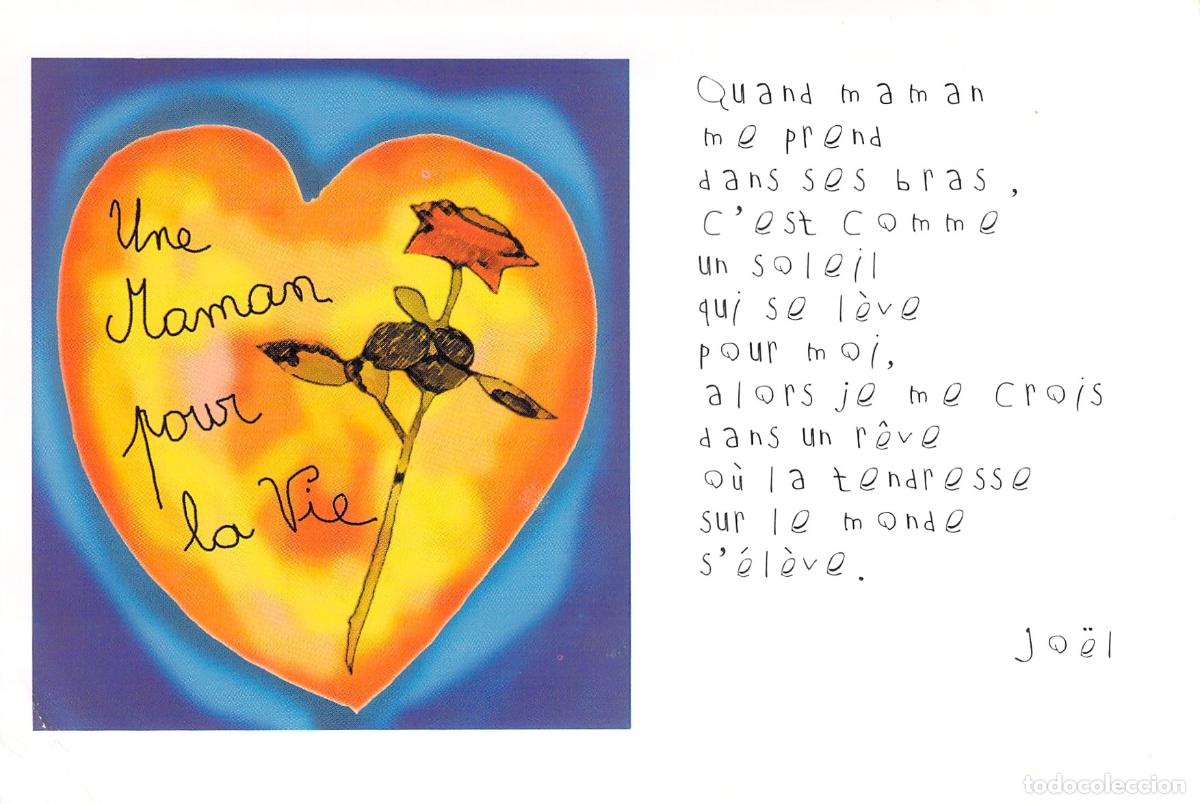 Une
Maman
pour
la Vie
Quand maman
me prend
dans ses bras,
c'est comme
un soleil
qui se lève
pour moi,
alors je me crois
dans un rêve
où la tendresse
sur le monde
s'élève.
Joël
todocoleccion